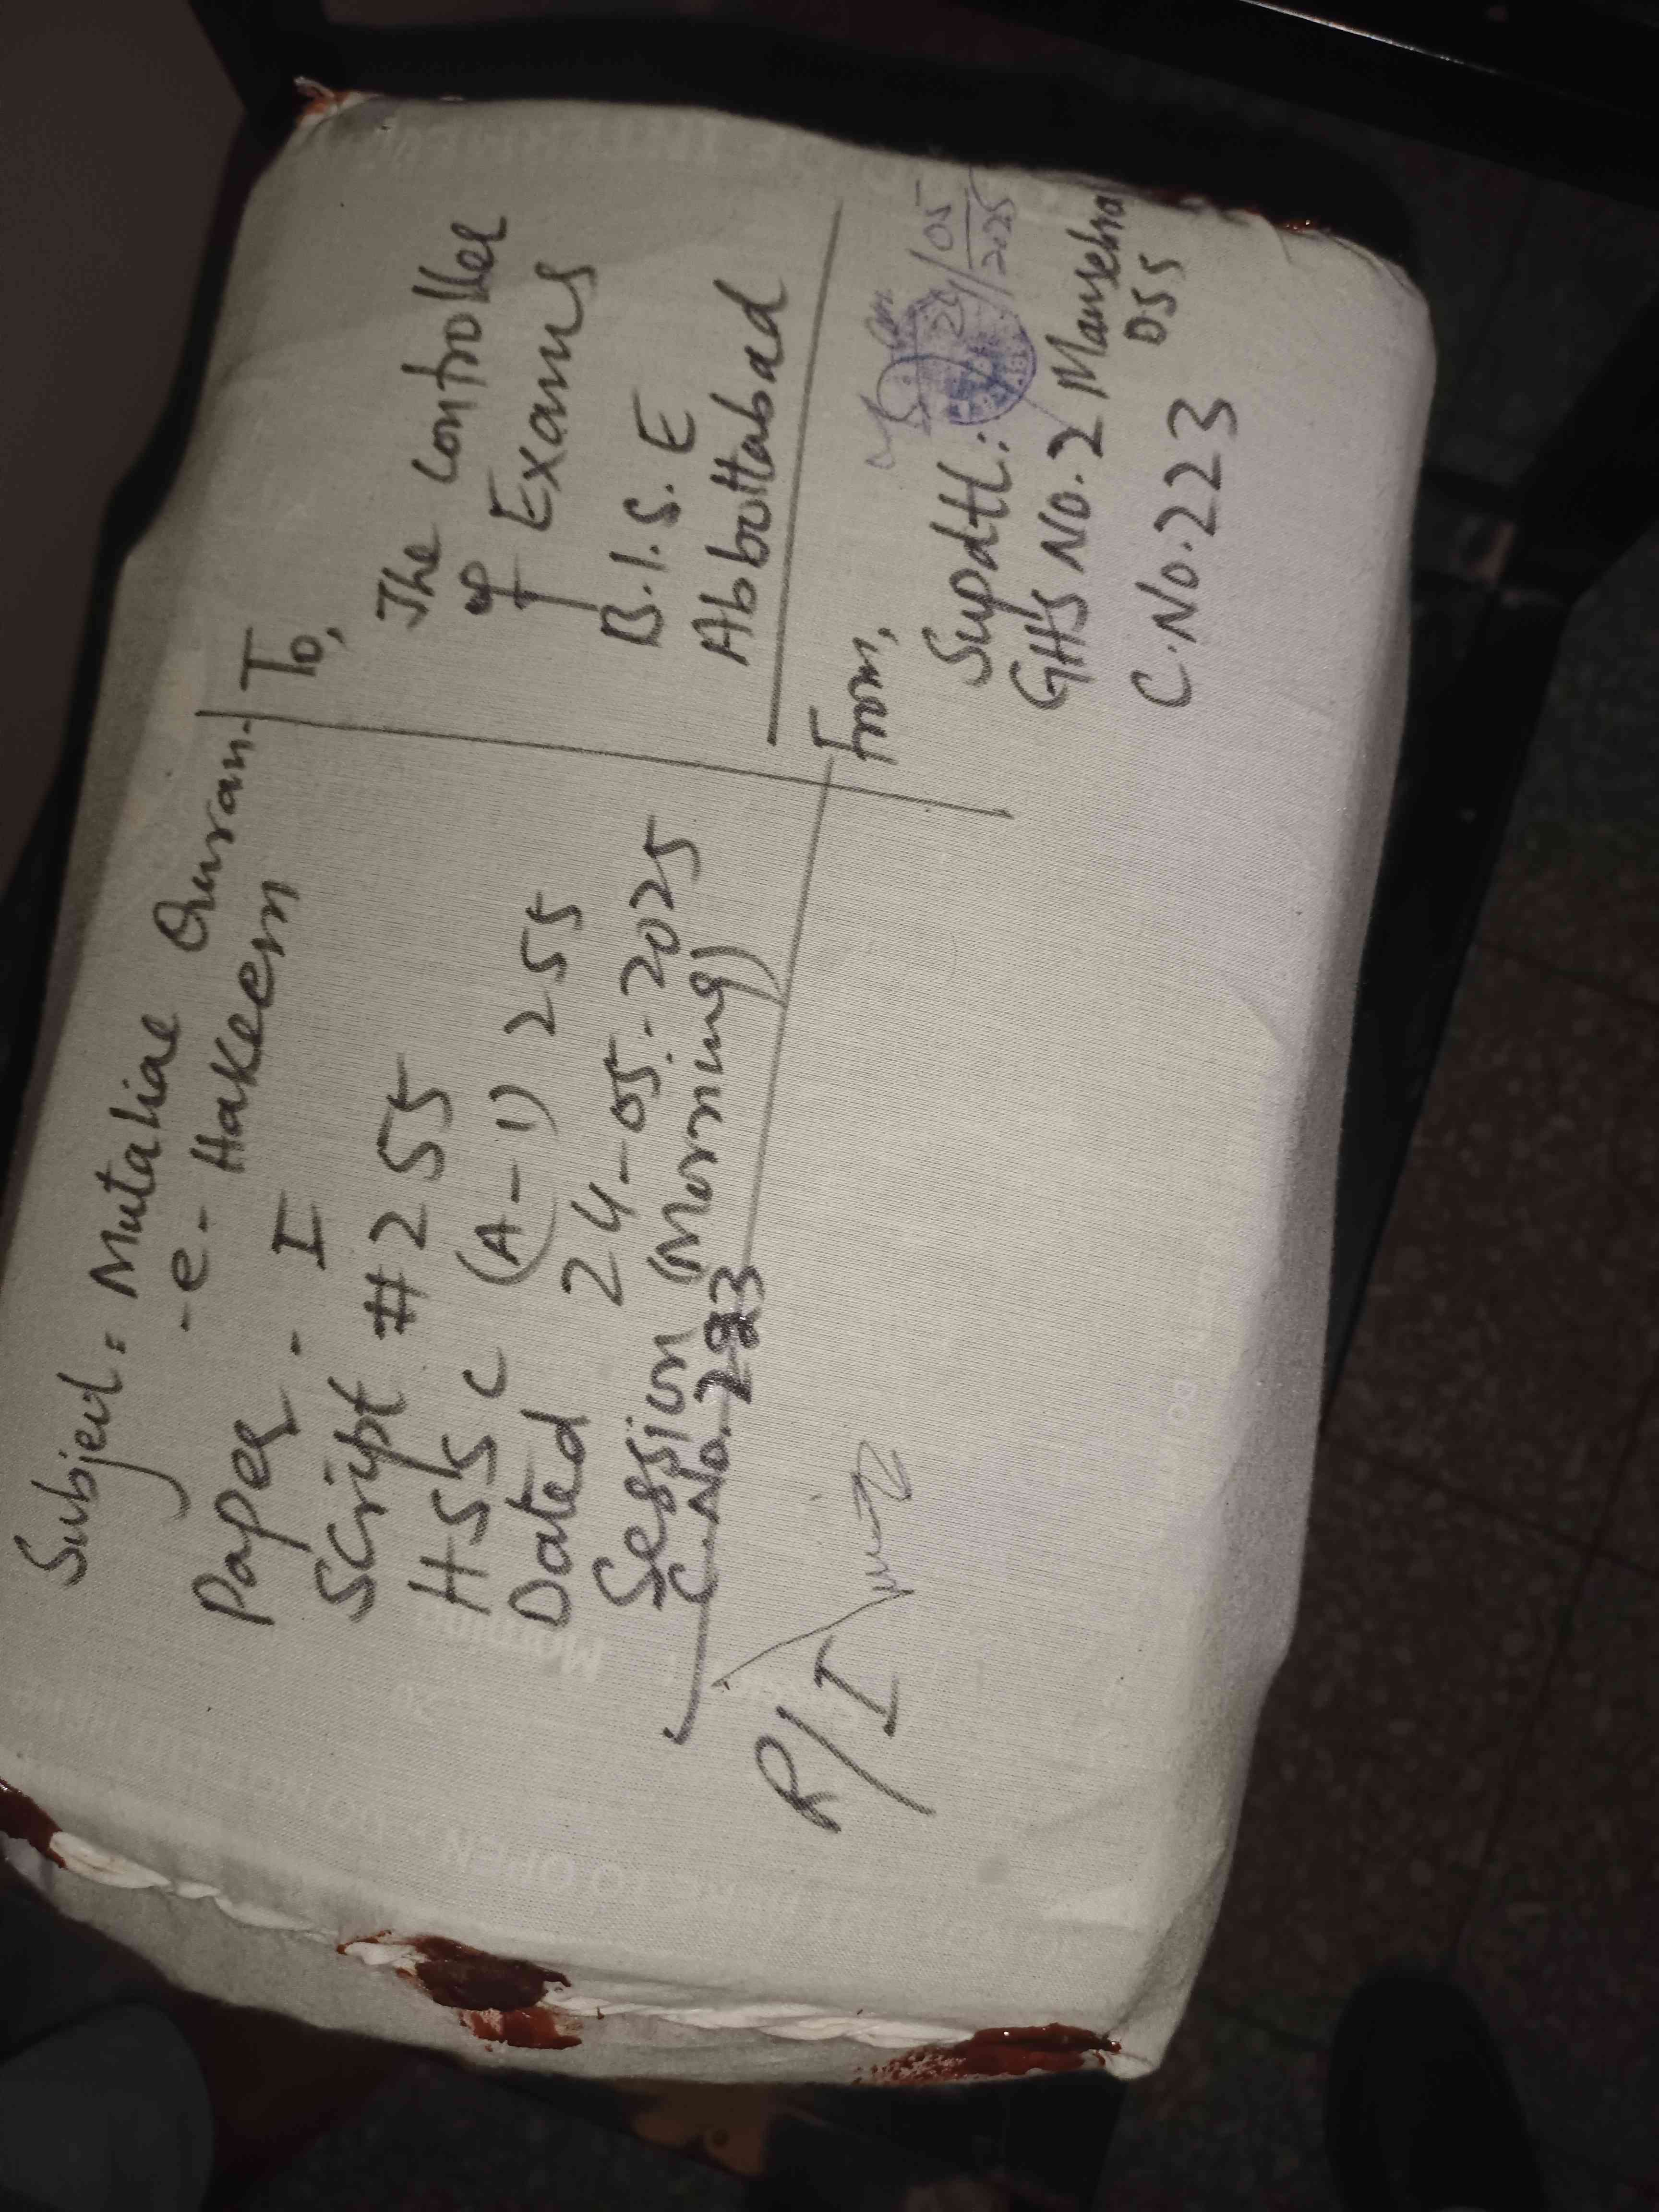 Subject: Mutaliae Quran-
-e-Hakeem
Paper - I
Script #255
HSSC (A-1) 255
Dated 24-05-2025
Session (Morning)
C.No. 223
R/I
To,
The Controller
of Exams
B.I.S.E
Abbottabad
From,
24/05/2025
Supdtt:
GHS No. 2 Mansehra
C.No. 223